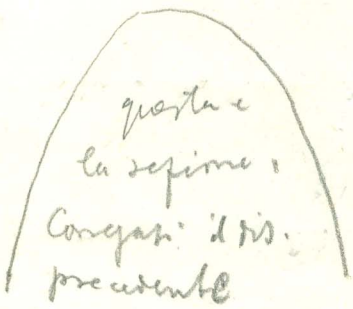 questa e
la sezione.
Corregasi il dis.
precedente